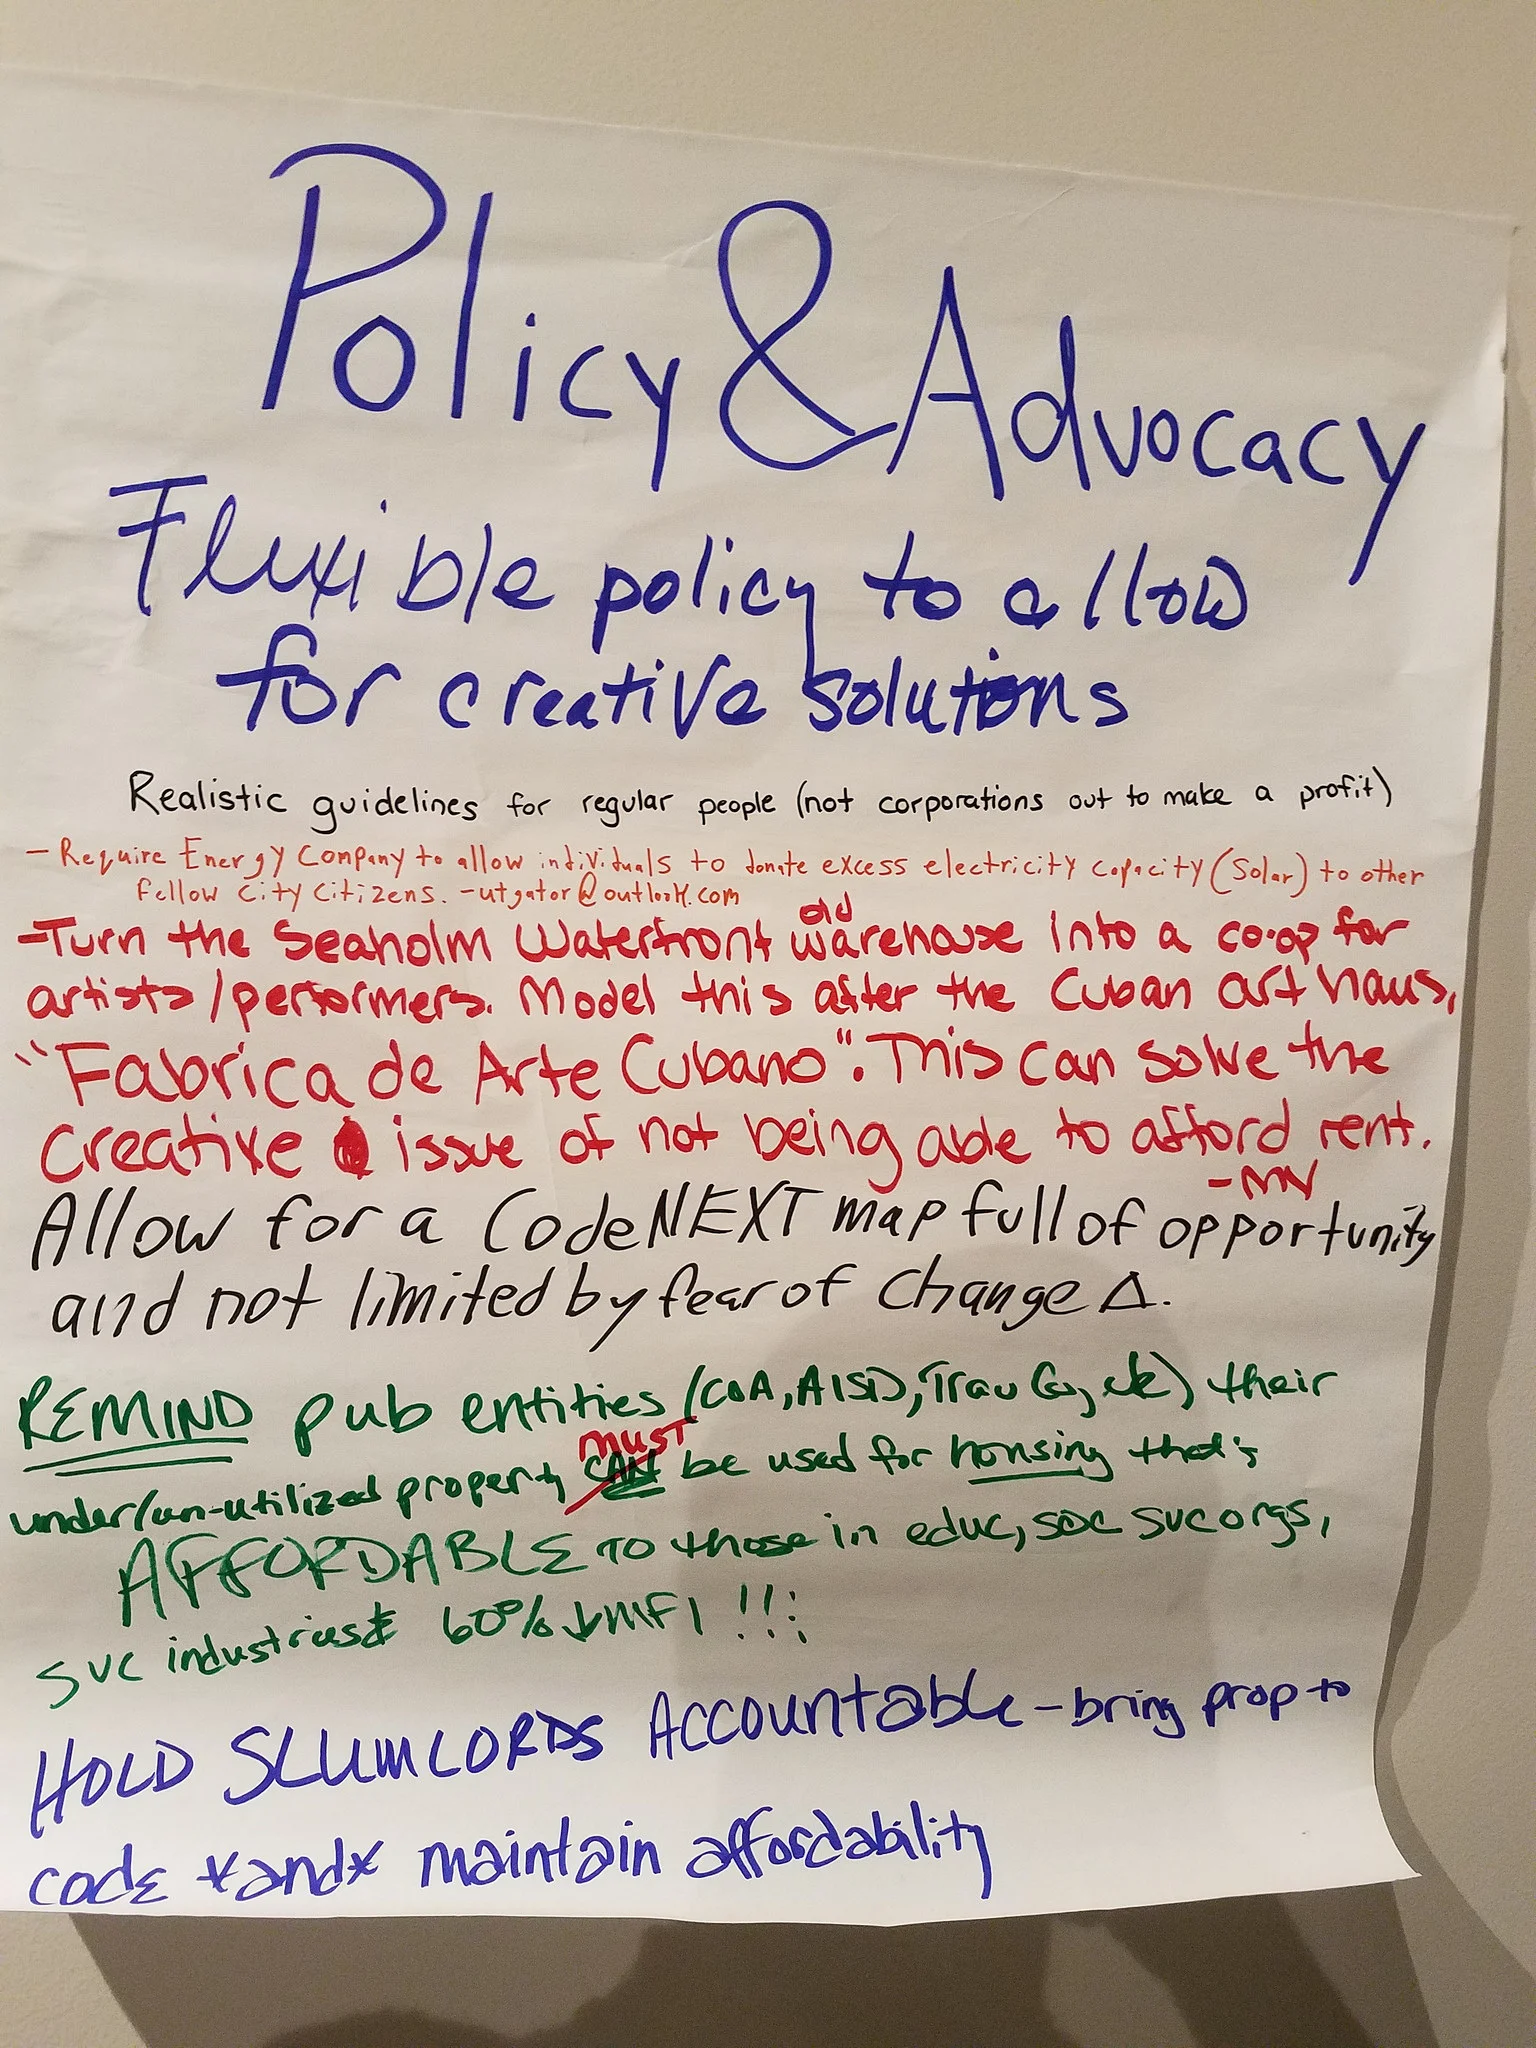 Policy & Advocacy
Flexible policy to allow
for creative solutions
Realistic guidelines for regular people (not corporations out to make a profit)
- Require Energy Company to allow individuals to donate excess electricity capacity (Solar) to other
fellow city citizens. - utgator@outlook.com
old
- Turn the Seaholm Waterfront warehouse into a co-op for
artists/performers. Model this after the Cuban art haus,
"Fabrica de Arte Cubano". This can solve the
creative issue of not being able to afford rent.
- MV
Allow for a CodeNEXT map full of opportunity
and not limited by fear of change Δ.
REMIND pub entities (COA, AISD, Trav Co, etc) their
must
under/un-utilized property CAN be used for housing that's
AFFORDABLE TO those in educ, soc svc orgs,
svc industries 60% ↓ MFI !!!
HOLD SLUMLORDS Accountable - bring prop to
code *and* maintain affordability